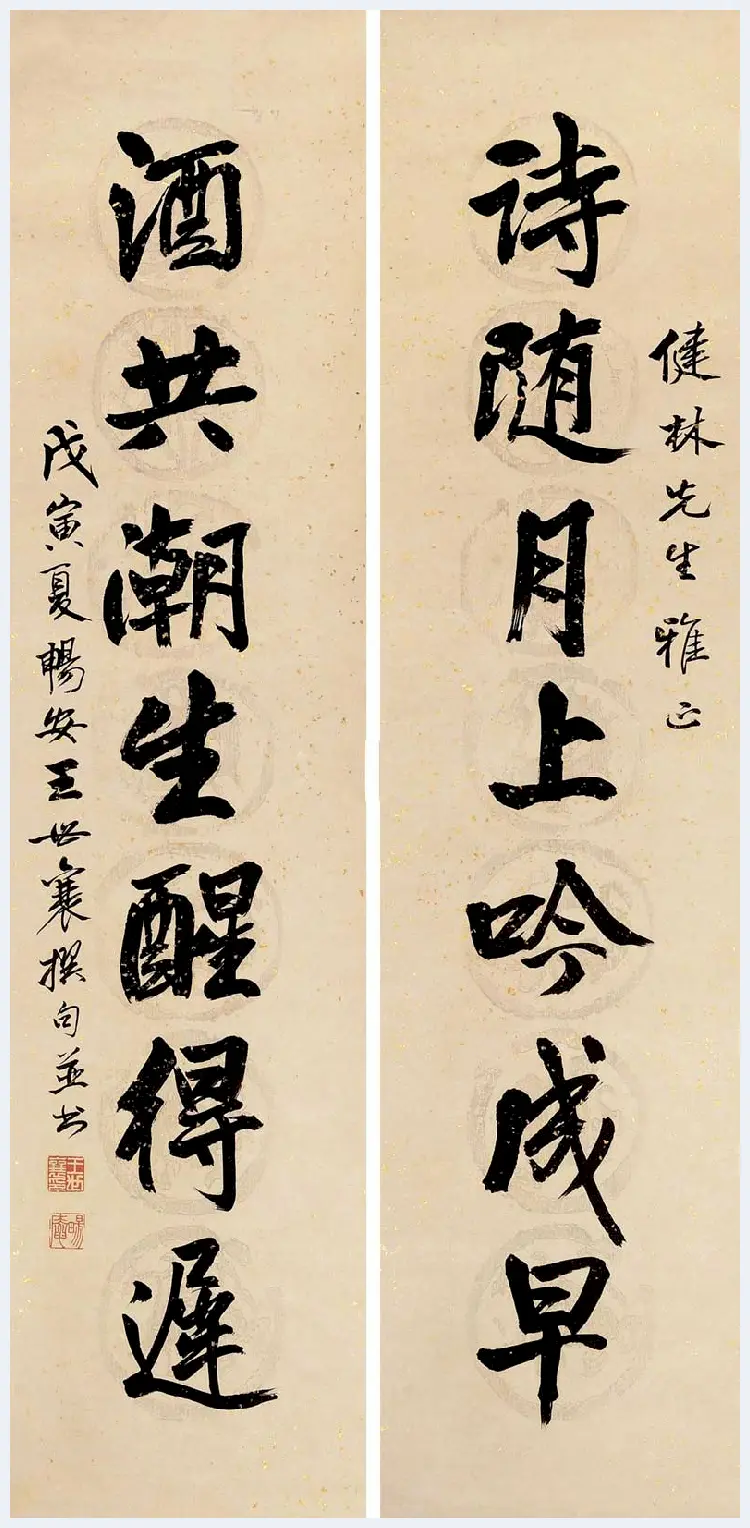 健林先生雅正
诗随月上吟成早
酒共潮生醒得遲
戊寅夏暢安王世襄撰句並书